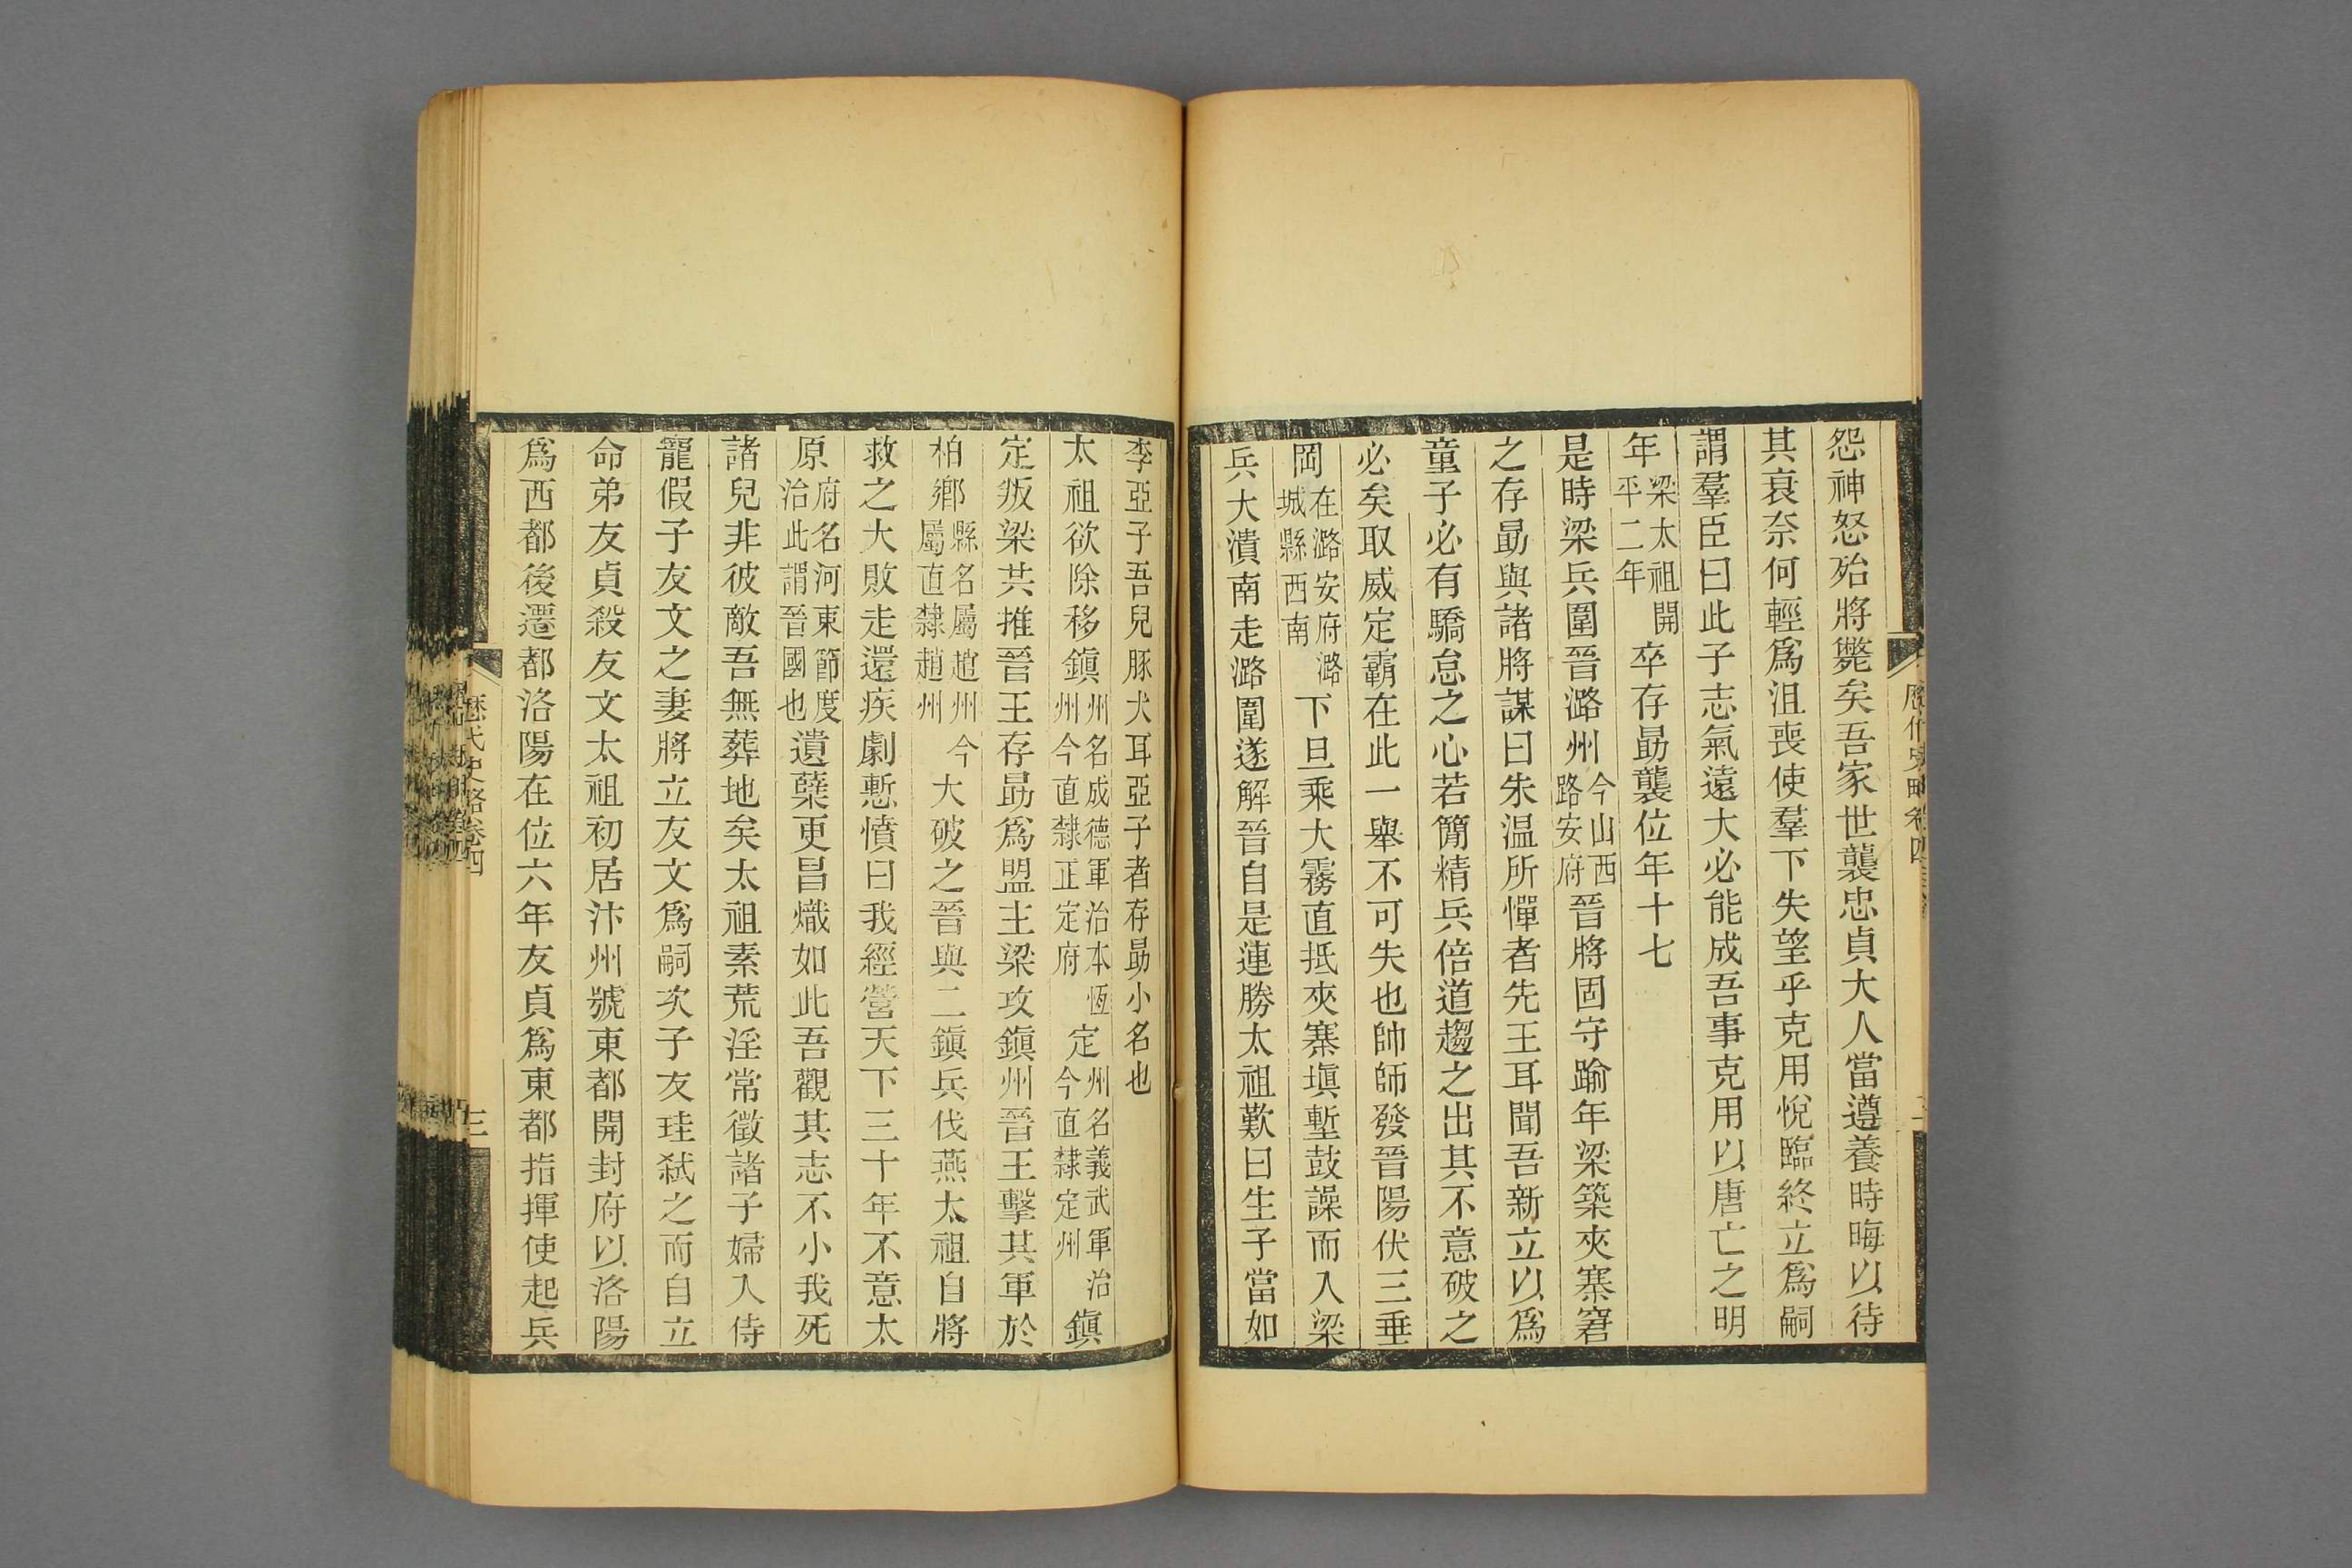 怨神怒殆將斃矣吾家世襲忠貞大人當遵養時晦以待
其衰奈何輕爲沮喪使羣下失望乎克用悅臨終立爲嗣
謂羣臣曰此子志氣遠大必能成吾事克用以唐亡之明
年梁太祖開平二年卒存勗襲位年十七
是時梁兵圍晉潞州今山西路安府晉將固守踰年梁築夾寨窘
之存勗與諸將謀曰朱温所憚者先王耳聞吾新立以爲
童子必有驕怠之心若簡精兵倍道趨之出其不意破之
必矣取威定霸在此一舉不可失也帥師發晉陽伏三垂
岡在潞安府潞城縣西南下旦乘大霧直抵夾寨塡塹鼓譟而入梁
兵大潰南走潞圍遂解晉自是連勝太祖歎曰生子當如
歷代史略卷四
李亞子吾兒豚犬耳亞子者存勗小名也
太祖欲除移鎭州名成德軍治本恆州今直隸正定府定州名義武軍治今直隸定州鎭
定叛梁共推晉王存勗爲盟主梁攻鎭州晉王擊其軍於
柏鄕縣名屬趙州今屬直隸趙州大破之晉與二鎭兵伐燕太祖自將
救之大敗走還疾劇慙憤曰我經營天下三十年不意太
原府名河東節度治此謂晉國也遺孽更昌熾如此吾觀其志不小我死
諸兒非彼敵吾無葬地矣太祖素荒淫常徵諸子婦入侍
寵假子友文之妻將立友文爲嗣次子友珪弑之而自立
命弟友貞殺友文太祖初居汴州號東都開封府以洛陽
爲西都後遷都洛陽在位六年友貞爲東都指揮使起兵
歷代史略卷四
三